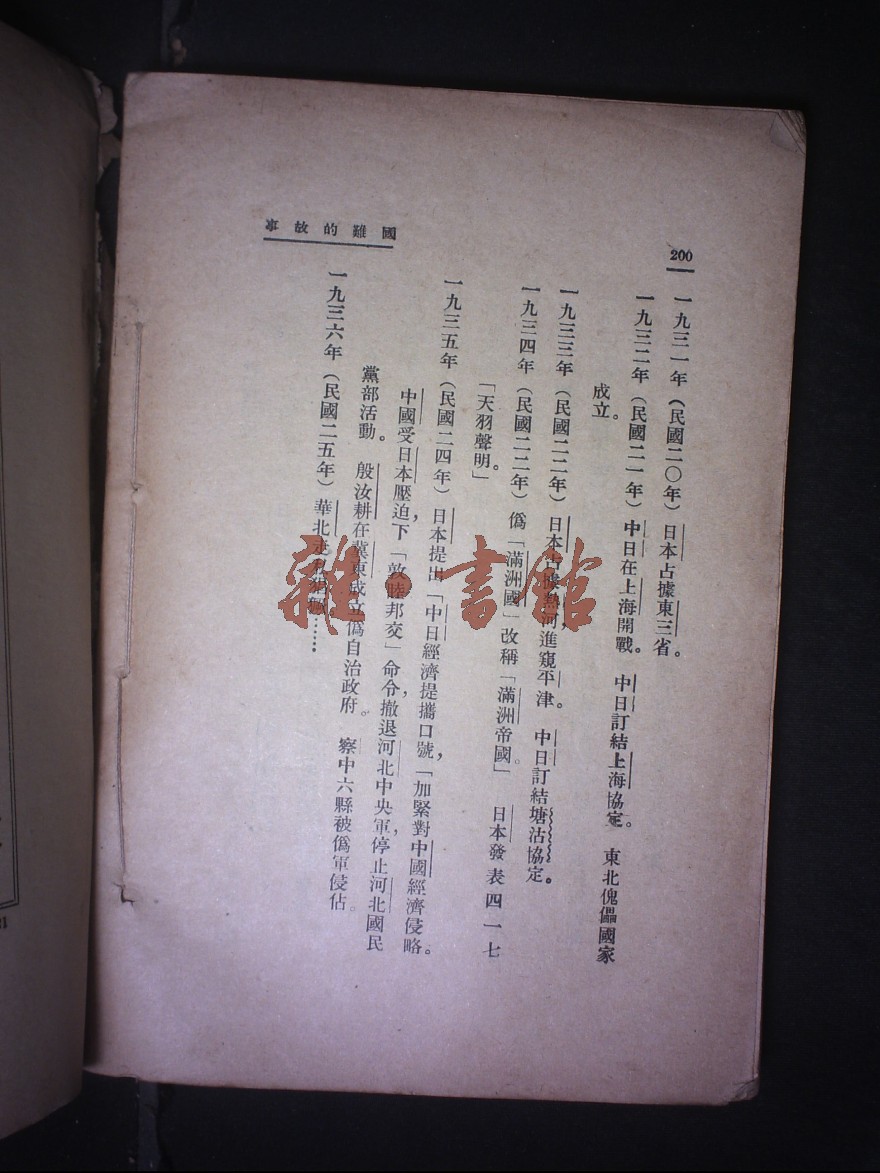 200
國難的故事
一九三一年（民國二〇年）日本占據東三省。
一九三二年（民國二一年）中日在上海開戰。　中日訂結上海協定。　東北傀儡國家
成立。
一九三三年（民國二二年）日本占據熱河，進窺平津。　中日訂結塘沽協定。
一九三四年（民國二二年）僞「滿洲國」改稱「滿洲帝國」。　日本發表四一七
「天羽聲明」。
一九三五年（民國二四年）日本提出「中日經濟提攜口號」，加緊對中國經濟侵略。
中國受日本壓迫，下「敦睦邦交」命令，撤退河北中央軍，停止河北國民
黨部活動。　殷汝耕在冀東成立僞自治政府。　察中六縣被僞軍侵佔。
一九三六年（民國二五年）華北走私……
雜·書館